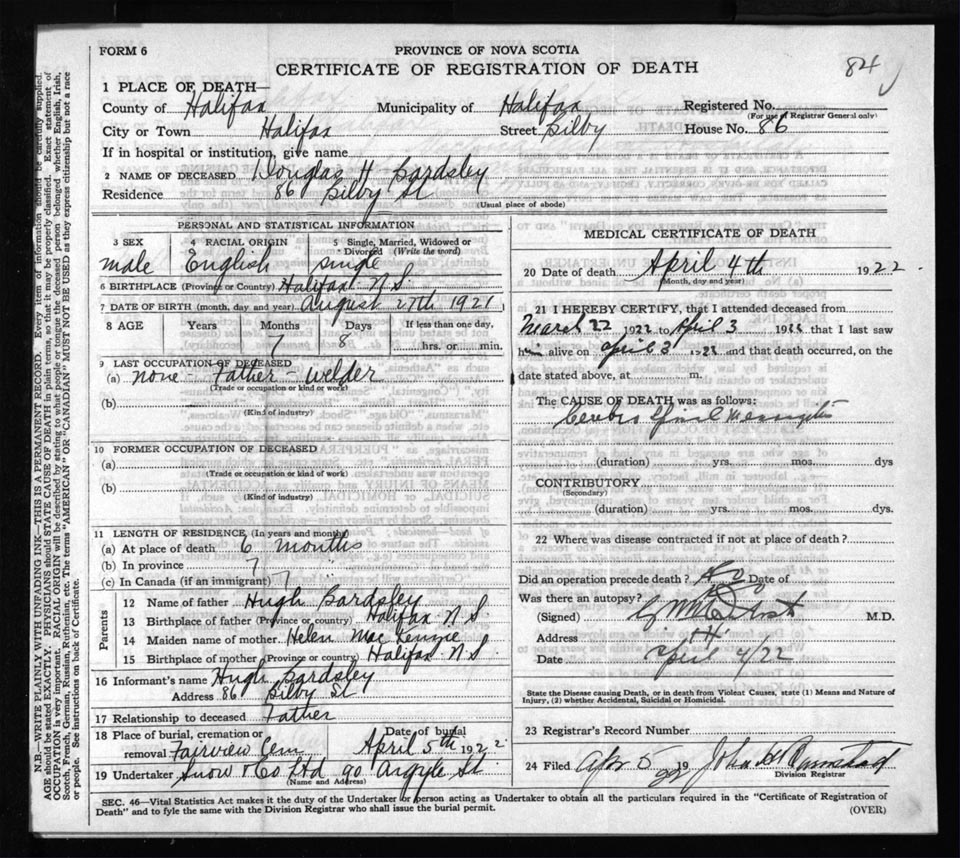 FORM 6
PROVINCE OF NOVA SCOTIA
CERTIFICATE OF REGISTRATION OF DEATH
84
1 PLACE OF DEATH—
County of Halifax Municipality of Halifax Registered No.
(For use of Registrar General only)
City or Town Halifax Street Bilby House No. 86
If in hospital or institution, give name
2 NAME OF DECEASED Douglas H Bardsley
Residence 86 Bilby St
(Usual place of abode)
PERSONAL AND STATISTICAL INFORMATION
3 SEX 4 RACIAL ORIGIN 5 Single, Married, Widowed or Divorced (Write the word)
male English single
6 BIRTHPLACE (Province or Country) Halifax N.S.
7 DATE OF BIRTH (month, day and year) August 27th 1921
8 AGE Years Months Days If less than one day,
7 8 hrs. or min.
9 LAST OCCUPATION OF DECEASED
(a) none - Father - welder
(Trade or occupation or kind of work)
(b)
(Kind of industry)
10 FORMER OCCUPATION OF DECEASED
(a)
(Trade or occupation or kind of work)
(b)
(Kind of industry)
11 LENGTH OF RESIDENCE (In years and months)
(a) At place of death 6 months
(b) In province 7
(c) In Canada (if an immigrant) 7
Parents
12 Name of father Hugh Bardsley
13 Birthplace of father (Province or country) Halifax N S
14 Maiden name of mother Helen MacKenzie
15 Birthplace of mother (Province or country) Halifax N.S.
16 Informant's name Hugh Bardsley
Address 86 Bilby St
17 Relationship to deceased Father
18 Place of burial, cremation or Date of burial
removal Fairview Cem April 5th 1922
19 Undertaker Snow & Co Ltd 90 Argyle St
(Name and Address)
MEDICAL CERTIFICATE OF DEATH
20 Date of death April 4th 1922.
(Month, day and year)
21 I HEREBY CERTIFY, that I attended deceased from
March 22 1922 to April 3 1922 that I last saw
him alive on April 3 1922 and that death occurred, on the
date stated above, at m.
The CAUSE OF DEATH was as follows:
Cerebro Spinal Meningitis
(duration) yrs. mos. dys
CONTRIBUTORY
(Secondary)
(duration) yrs. mos. dys.
22 Where was disease contracted if not at place of death?
Did an operation precede death? No Date of
Was there an autopsy? No
(Signed) M.D.
Address
Date April 4/22
State the Disease causing Death, or in death from Violent Causes, state (1) Means and Nature of
Injury, (2) whether Accidental, Suicidal or Homicidal.
23 Registrar's Record Number
24 Filed Apr 5 1922 John
Division Registrar
SEC. 46—Vital Statistics Act makes it the duty of the Undertaker or person acting as Undertaker to obtain all the particulars required in the "Certificate of Registration of
Death" and to fyle the same with the Division Registrar who shall issue the burial permit.
(OVER)
N.B.—WRITE PLAINLY WITH UNFADING INK—THIS IS A PERMANENT RECORD. Every item of information should be carefully supplied.
AGE should be stated EXACTLY. PHYSICIANS should STATE CAUSE OF DEATH in plain terms, so that it may be properly classified. Exact statement of
OCCUPATION is very important. RACIAL ORIGIN will be described by stating to what people or tongue the deceased person belonged whether English, Irish,
Scotch, French, German, Russian, Ruthenian, etc. The terms "AMERICAN" OR "CANADIAN" MUST NOT BE USED as they express citizenship but not a race
or people. See instructions on back of Certificate.